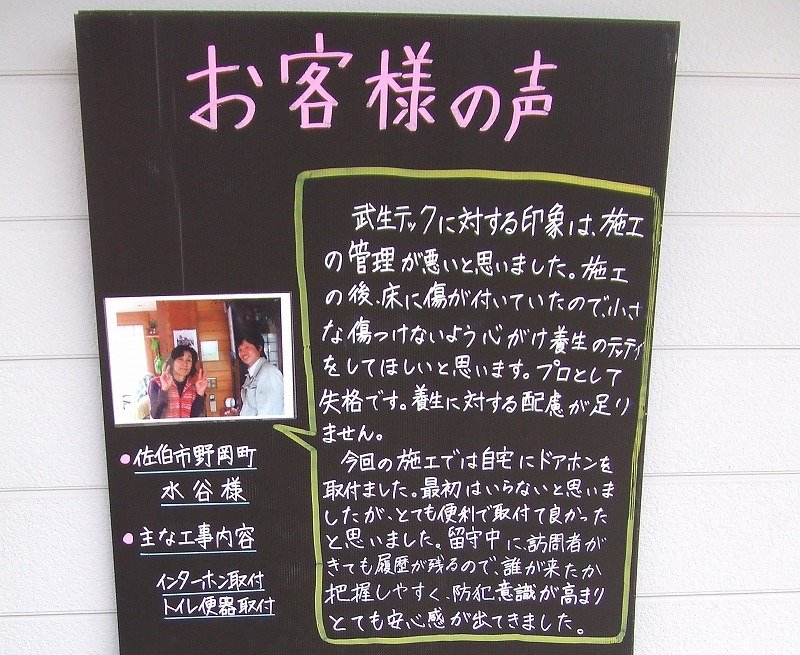 お客様の声
武生テックに対する印象は、施工
の管理が悪いと思いました。施工
の後、床に傷が付いていたので、小さ
な傷つけないよう心がけ養生のテッテイ
をしてほしいと思います。プロとして
失格です。養生に対する配慮が足り
ません。
今回の施工では自宅にドアホンを
取付ました。最初はいらないと思いま
したが、とても便利で取付て良かった
と思いました。留守中に訪問者が
きても履歴が残るので、誰が来たか
把握しやすく、防犯意識が高まり
とても安心感が出てきました。
●佐伯市野岡町
水谷様
●主な工事内容
インターホン取付
トイレ便器取付